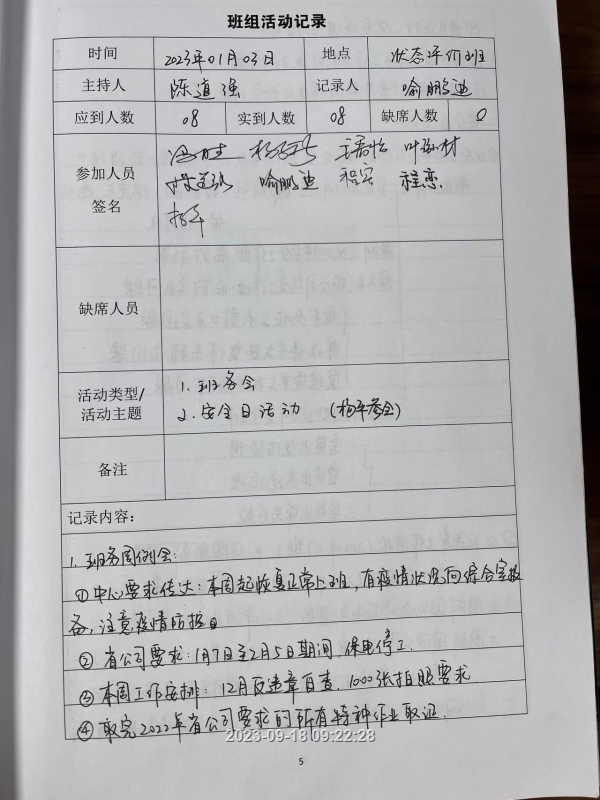 班组活动记录
时间 2023年01月03日 地点 状态评价班
主持人 陈道强 记录人 喻鹏迪
应到人数 08 实到人数 08 缺席人数 0
参加人员
签名
喻鹏迪 程实 程恋
杨平
缺席人员
活动类型/
活动主题
1. 班务会
2. 安全日活动 (杨平参会)
备注
记录内容:
1. 班务周例会:
①中心要求传达:本周起恢复正常上班,有疫情状况向综合室报
备,注意疫情防控。
② 省公司要求:1月7日至2月5日期间,保电停工.
③ 本周工作安排: 12月反违章自查. 1000张拍照要求.
④ 取完2022年省公司要求的所有特种作业取证.
2023-09-18 09:22:28
5